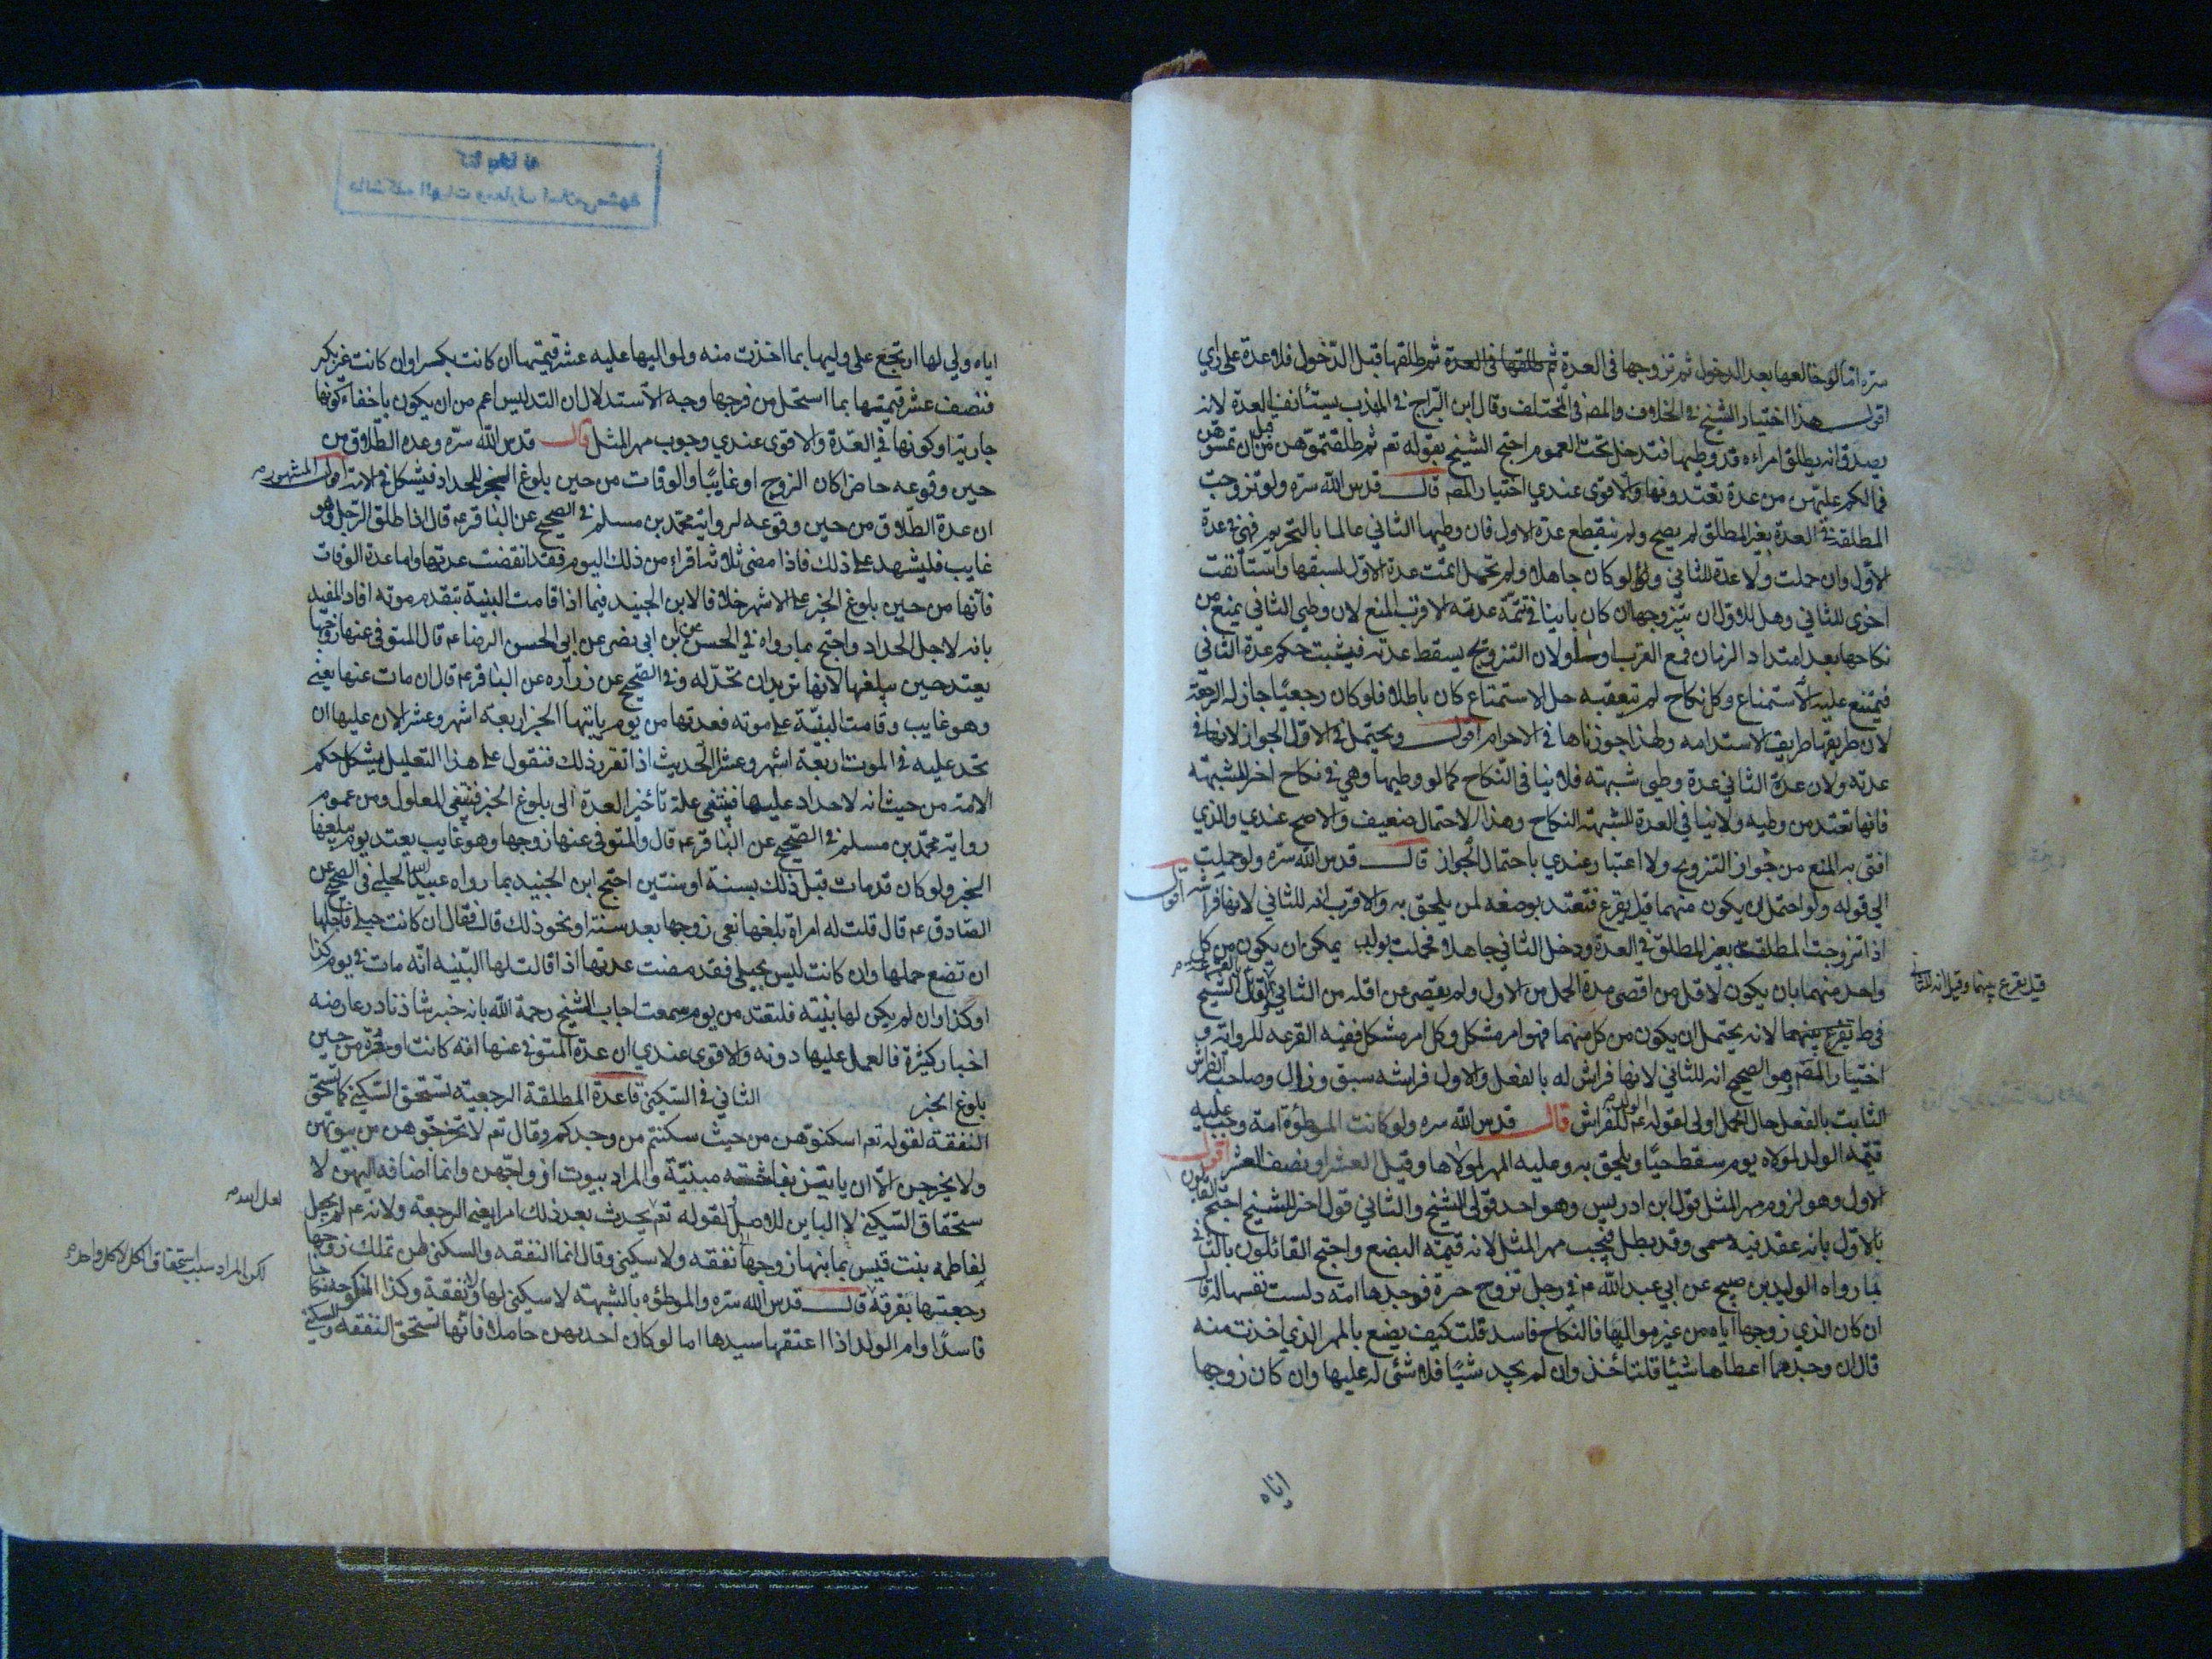 سره اما لو خالعها بعد الدخول ثم تزوجها في العدة ثم طلقها في العدة ثم طلقها قبل الدخول فلا عدة على راي
اقول هذا اختيار الشيخ في الخلاف والمص في المختلف وقال ابن البراج في المهذب يستأنف العدة لانه
يصدق انه يطلق امراءه قد وطيها فتدخل تحت العموم احتج الشيخ بقوله تع ثم طلقتموهن من قبل ان تمسوهن
فمالكم عليهن من عدة تعتدونها والاقوى عندي اختيار المص قال قدس الله سره ولو تزوجت
المطلقة في العدة بغير المطلق لم يصح ولم ينقطع عدة الاول فان وطيها الثاني عالما بالتحريم فهي في عدة
الاول وان حملت ولا عدة للثاني ولو كان جاهلا ولم تحمل اتمت عدة الاول لسبقها واستأنفت
اخرى للثاني وهل للاول ان يتزوجها ان كان باينا في تتمة عدته الاقرب المنع لان وطي الثاني يمنع من
نكاحها بعد امتداد الزمان فمع القرب اولى ولان التزويج يسقط عدته فيثبت حكم عدة الثاني
فيمتنع عليه الاستمتاع وكل نكاح لم يتعقبه حل الاستمتاع كان باطلا فلو كان رجعيا جاز له الرجعة
لان طريقها طريق الاستدامه ولهذا جوزناها في الاحرام اقول ويحتمل في الاول الجواز لانها في
عدته ولان عدة الثاني عدة وطي شبهة فلا ينافي النكاح كما لو وطيها وهي في نكاح اخر للشبهة
فانها تعتد من وطيه ولا ينافي العدة للشبهة النكاح وهذا الاحتمال ضعيف والاصح عندي والذي
افتى به المنع من جواز التزويج ولا اعتبار عندي باحتمال الجواز قال قدس الله سره ولو حملت
الى قوله ولو احتمل ان يكون منهما قيل يقرع فتعتد بوضعه لمن يلحق به والاقرب انه للثاني لانها فراشه اقول
اذا تزوجت المطلقة بغير المطلق في العدة ودخل الثاني جاهلا فحملت بولد يمكن ان يكون من كل
واحد منهما بان يكون لاقل من اقصى مدة الحمل من الاول ولم يقصر عن اقله من الثاني قال الشيخ
قيل يقرع بينهما وقيل انه للثاني
في ط يقرع بينهما لانه يحتمل ان يكون من كل منهما فهو امر مشكل وكل امر مشكل ففيه القرعه للرواية و
اختيار المص وهو الصحيح انه للثاني لانها فراش له بالفعل والاول فراشه سبق وزال وصاحب الفراش
الثابت بالفعل حال الحمل اولى لقوله عم الولد للفراش قال قدس الله سره ولو كانت الموطؤة امة وجب عليه
قيمة الولد لمولاه يوم سقط حيا ويلحق به وعليه المهر لمولاها وقيل العشر او نصف العشر اقول
الاول وهو لزوم مهر المثل قول ابن ادريس وهو احد قولي الشيخ والثاني قول اخر للشيخ احتج القايلون
بالاول بانه عقد فيه مسمى وقد بطل فيجب مهر المثل لانه قيمة البضع واحتج القائلون بالثاني
بما رواه الوليد بن صبيح عن ابي عبد الله عم في رجل تزوج حرة فوجدها امة دلست نفسها له قال
ان كان الذي زوجها اياه من غير مواليها فالنكاح فاسد قلت كيف يصنع بالمهر الذي اخذت منه
قال ان وجد مما اعطاها شيئا فليأخذ وان لم يجد شيئا فلا شئ له عليها وان كان زوجها
اياه
اياه ولي لها ارتجع على وليها بما اخذت منه ولمواليها عليه عشر قيمتها ان كانت بكسرا وان كانت غير بكر
فنصف عشر قيمتها بما استحل من فرجها وجه الاستدلال ان التدليس اعم من ان يكون باخفاء كونها
جارية او كونها في العدة والاقوى عندي وجوب مهر المثل قال قدس الله سره وعدة الطلاق من
حين وقوعه حاضرا كان الزوج او غايبا والوفات من حين بلوغ الخبر للحداد فيشكل في الامة اقول المشهور
ان عدة الطلاق من حين وقوعه لرواية محمد بن مسلم في الصحيح عن الباقر عم قال اذا طلق الرجل وهو
غايب فليشهد على ذلك فاذا مضى ثلاثة اقراء من ذلك اليوم فقد انقضت عدتها واما عدة الوفات
فانها من حين بلوغ الخبر على الاشهر خلافا لابن الجنيد فيما اذا قامت البينة بتقدم موته افاد المفيد
بانه لاجل الحداد واحتج بما رواه في الحسن عن ابن ابي نصر عن ابي الحسن الرضا عم قال المتوفى عنها زوجها
يعتد حين يبلغها لانها تريد ان تحد له وفي الصحيح عن زراره عن الباقر عم قال ان مات عنها يعني
وهو غايب وقامت البينة على موته فعدتها من يوم ياتيها الخبر اربعة اشهر وعشرا لان عليها ان
تحد عليه في الموت اربعة اشهر وعشرا الحديث اذا تقرر ذلك فنقول على هذا التعليل يشكل حكم
الامة من حيث انه لا حداد عليها فينتفي علة تأخير العدة الى بلوغ الخبر فينتفي المعلول ومن عموم
رواية محمد بن مسلم في الصحيح عن الباقر عم قال والمتوفى عنها زوجها وهو غايب يعتد يوم يبلغها
الخبر ولو كان قد مات قبل ذلك بسنة او سنتين احتج ابن الجنيد بما رواه عبيد الله الحلبي في الصحيح عن
الصادق عم قال قلت له امراة بلغها نعي زوجها بعد سنة او نحو ذلك قال فقال ان كانت حبلى فاجلها
ان تضع حملها وان كانت ليس بحبلى فقد مضت عدتها اذا قامت لها البينه انه مات في يوم كذا
او كذا وان لم يكن لها بينة فلتعتد من يوم سمعت اجاب الشيخ رحمة الله بانه خبر شاذ نادر عارضه
اخبار كثيرة فالعمل عليها دونه والاقوى عندي ان عدة المتوفى عنها امة كانت او حرة من حين
بلوغ الخبر الثاني في السكنى قاعدة المطلقة الرجعية تستحق السكنى كما تستحق
النفقة لقوله تع اسكنوهن من حيث سكنتم من وجدكم وقال تع لا تخرجوهن من بيوتهن
ولا يخرجن الا ان ياتين بفاحشة مبينة والمراد بيوت ازواجهن وانما اضافه اليهن لا
ستحقاق السكنى لا الباين للاصل لقوله تع يحدث بعد ذلك امرا يعني الرجعة ولانه عم لم يجعل
لعل الله
لفاطمه بنت قيس بما بتها زوجها نفقه ولا سكنى وقال انما النفقه والسكنى لمن تملك زوجها
لكن المراد سبب استحقاق الكل لا كل واحد
رجعتها بفرقة قال قدس الله سره والموطؤه بالشبهة لا سكنى لها ولا نفقة وكذا المنكوحة نكاحا
فاسدا وام الولد اذا اعتقها سيدها اما لو كان احديهن حاملا فانها تستحق النفقه والسكنى